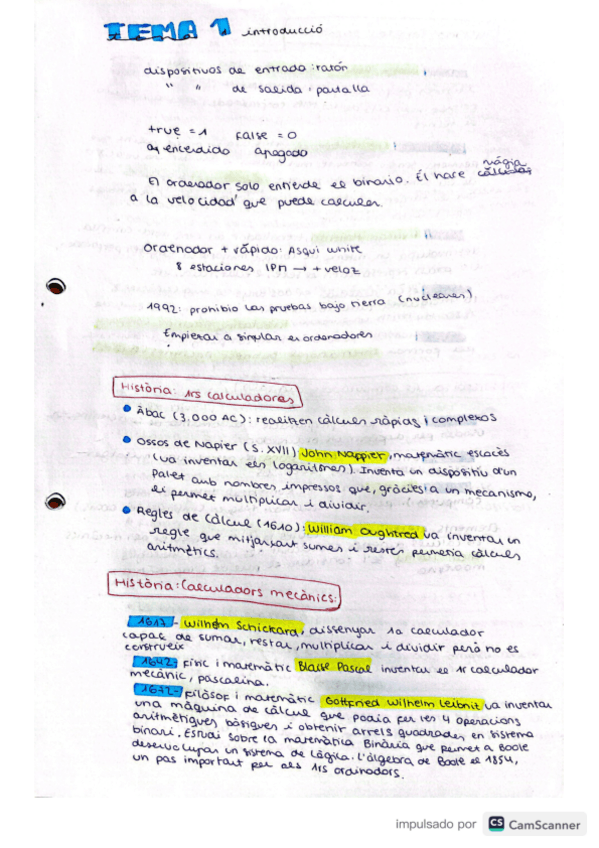 TEMA 1 introducció
dispositivos de entrada: ratón
" " de salida: pantalla
true = 1 false = 0
encendido apagado
El ordenador solo entiende el binario. Él hace magia
a la velocidad que puede calcular.
ordenador + rápido: Asqui white
8 estaciones IBM → + veloz
1992: prohibio las pruebas bajo tierra (nucleares)
Empiezan a simular en ordenadores
Història: 1rs calculadores
• Àbac (3.000 AC): realitzen càlculs ràpids i complexos
• Ossos de Napier (S. XVII) John Nappier, matemàtic escocès
(va inventar els logaritmes). Inventa un dispositiu d'un
palet amb nombres impressos que, gràcies a un mecanisme,
li permet multiplicar i dividir.
• Regles de Càlcul (1610): William Oughtred va inventar un
regle que mitjançant sumes i restes permetia càlculs
aritmètics.
Història: Calculadors mecànics:
1617 - Wilhelm Schickard, dissenyar 1a calculador
capaç de sumar, restar, multiplicar i dividir però no es
construeix
1642: Físic i matemàtic Blaise Pascal inventar el 1r calculador
mecànic, pascalina.
1672 - Filòsof i matemàtic Gottfried Wilhelm Leibnit va inventar
una màquina de càlcul que podia fer les 4 operacions
aritmètiques bàsiques i obtenir arrels quadrades, en sistema
binari. Estudi sobre la matemàtica Binària que permet a Boole
desenvolupar un sistema de Lògica. L'àlgebra de Boole el 1854,
un pas important per als 1rs ordinadors.
impulsado por CS CamScanner